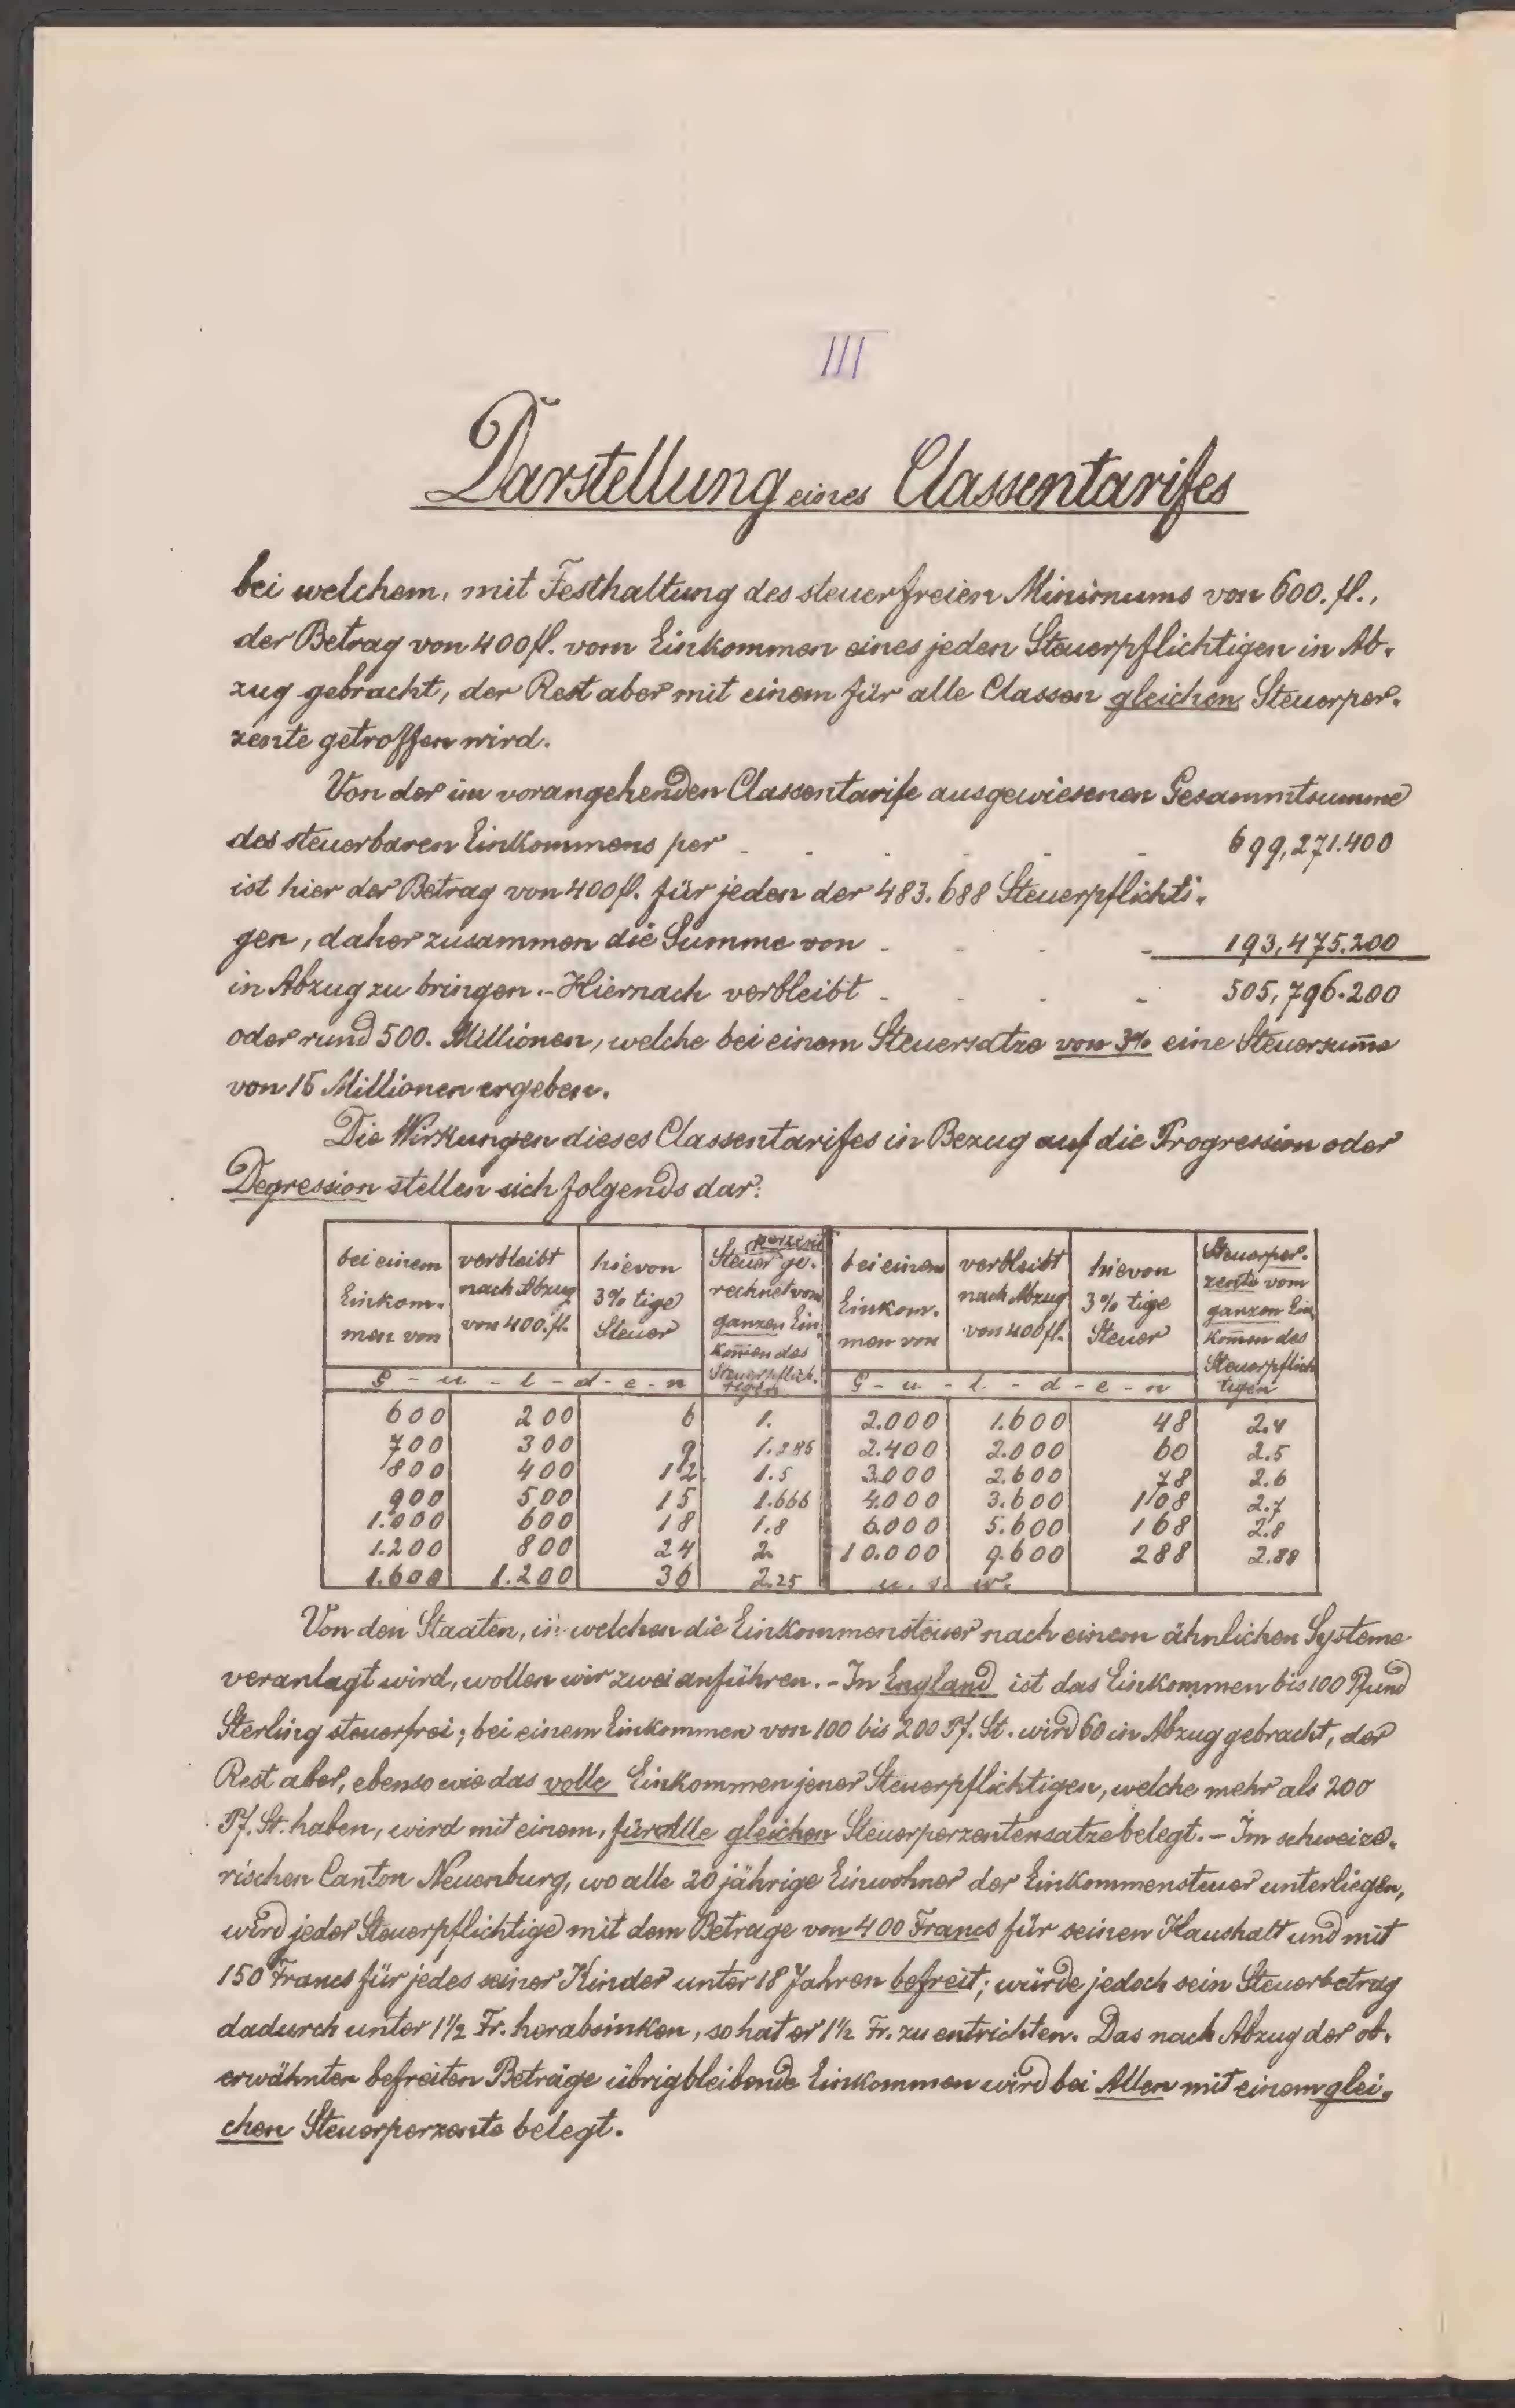 III
Darstellung eines Classentarifes
bei welchem, mit Festhaltung des steuerfreien Minimums von 600. fl.,
der Betrag von 400 fl. vom Einkommen eines jeden Steuerpflichtigen in Ab-
zug gebracht, der Rest aber mit einem für alle Classen gleichen Steuerper-
zente getroffen wird.
Von der im vorangehenden Classentarife ausgewiesenen Gesammtsumme
des steuerbaren Einkommens per - - - - - 699,271.400
ist hier der Betrag von 400 fl. für jeden der 483.688 Steuerpflichti-
gen, daher zusammen die Summe von - - - - 193,475.200
in Abzug zu bringen. - Hiernach verbleibt - - - - 505,796.200
oder rund 500. Millionen, welche bei einem Steuersatze von 3% eine Steuersum̄e
von 15 Millionen ergeben.
Die Wirkungen dieses Classentarifes in Bezug auf die Progression oder
Degression stellen sich folgends dar:
bei einem Einkom-men von | verbleibt nach Abzug von 400. fl. | hievon 3% tige Steuer | Steuer perzent ge-rechnet vom ganzen Ein-kom̄en des Steuerpflich-tigen | bei einem Einkom-men von | verbleibt nach Abzug von 400 fl. | hievon 3% tige Steuer | Steuerper-zente vom ganzen Ein-kom̄en des Steuerpflich-tigen
G - u - l - d - e - n | G - u - l - d - e - n
600 200 6 1. 2.000 1.600 48 2.4
700 300 9 1.285 2.400 2.000 60 2.5
800 400 12 1.5 3.000 2.600 78 2.6
900 500 15 1.666 4.000 3.600 108 2.7
1.000 600 18 1.8 6.000 5.600 168 2.8
1.200 800 24 2. 10.000 9.600 288 2.88
1.600 1.200 36 2.25 u. s. w.
Von den Staaten, in welchen die Einkommensteuer nach einem ähnlichen Systeme
veranlagt wird, wollen wir zwei anführen. - In England ist das Einkommen bis 100 Pfund
Sterling steuerfrei; bei einem Einkommen von 100 bis 200 Pf. St. wird 60 in Abzug gebracht, der
Rest aber, ebenso wie das volle Einkommen jener Steuerpflichtigen, welche mehr als 200
Pf. St. haben, wird mit einem, für Alle gleichen Steuerperzentensatze belegt. - Im schweize-
rischen Canton Neuenburg, wo alle 20 jährige Einwohner der Einkommensteuer unterliegen,
wird jeder Steuerpflichtige mit dem Betrage von 400 Francs für seinen Haushalt und mit
150 Francs für jedes seiner Kinder unter 18 Jahren befreit; würde jedoch sein Steuerbetrag
dadurch unter 1½ Fr. herabsinken, so hat er 1½ Fr. zu entrichten. Das nach Abzug der ob-
erwähnten befreiten Beträge übrigbleibende Einkommen wird bei Allen mit einem glei-
chen Steuerperzente belegt.